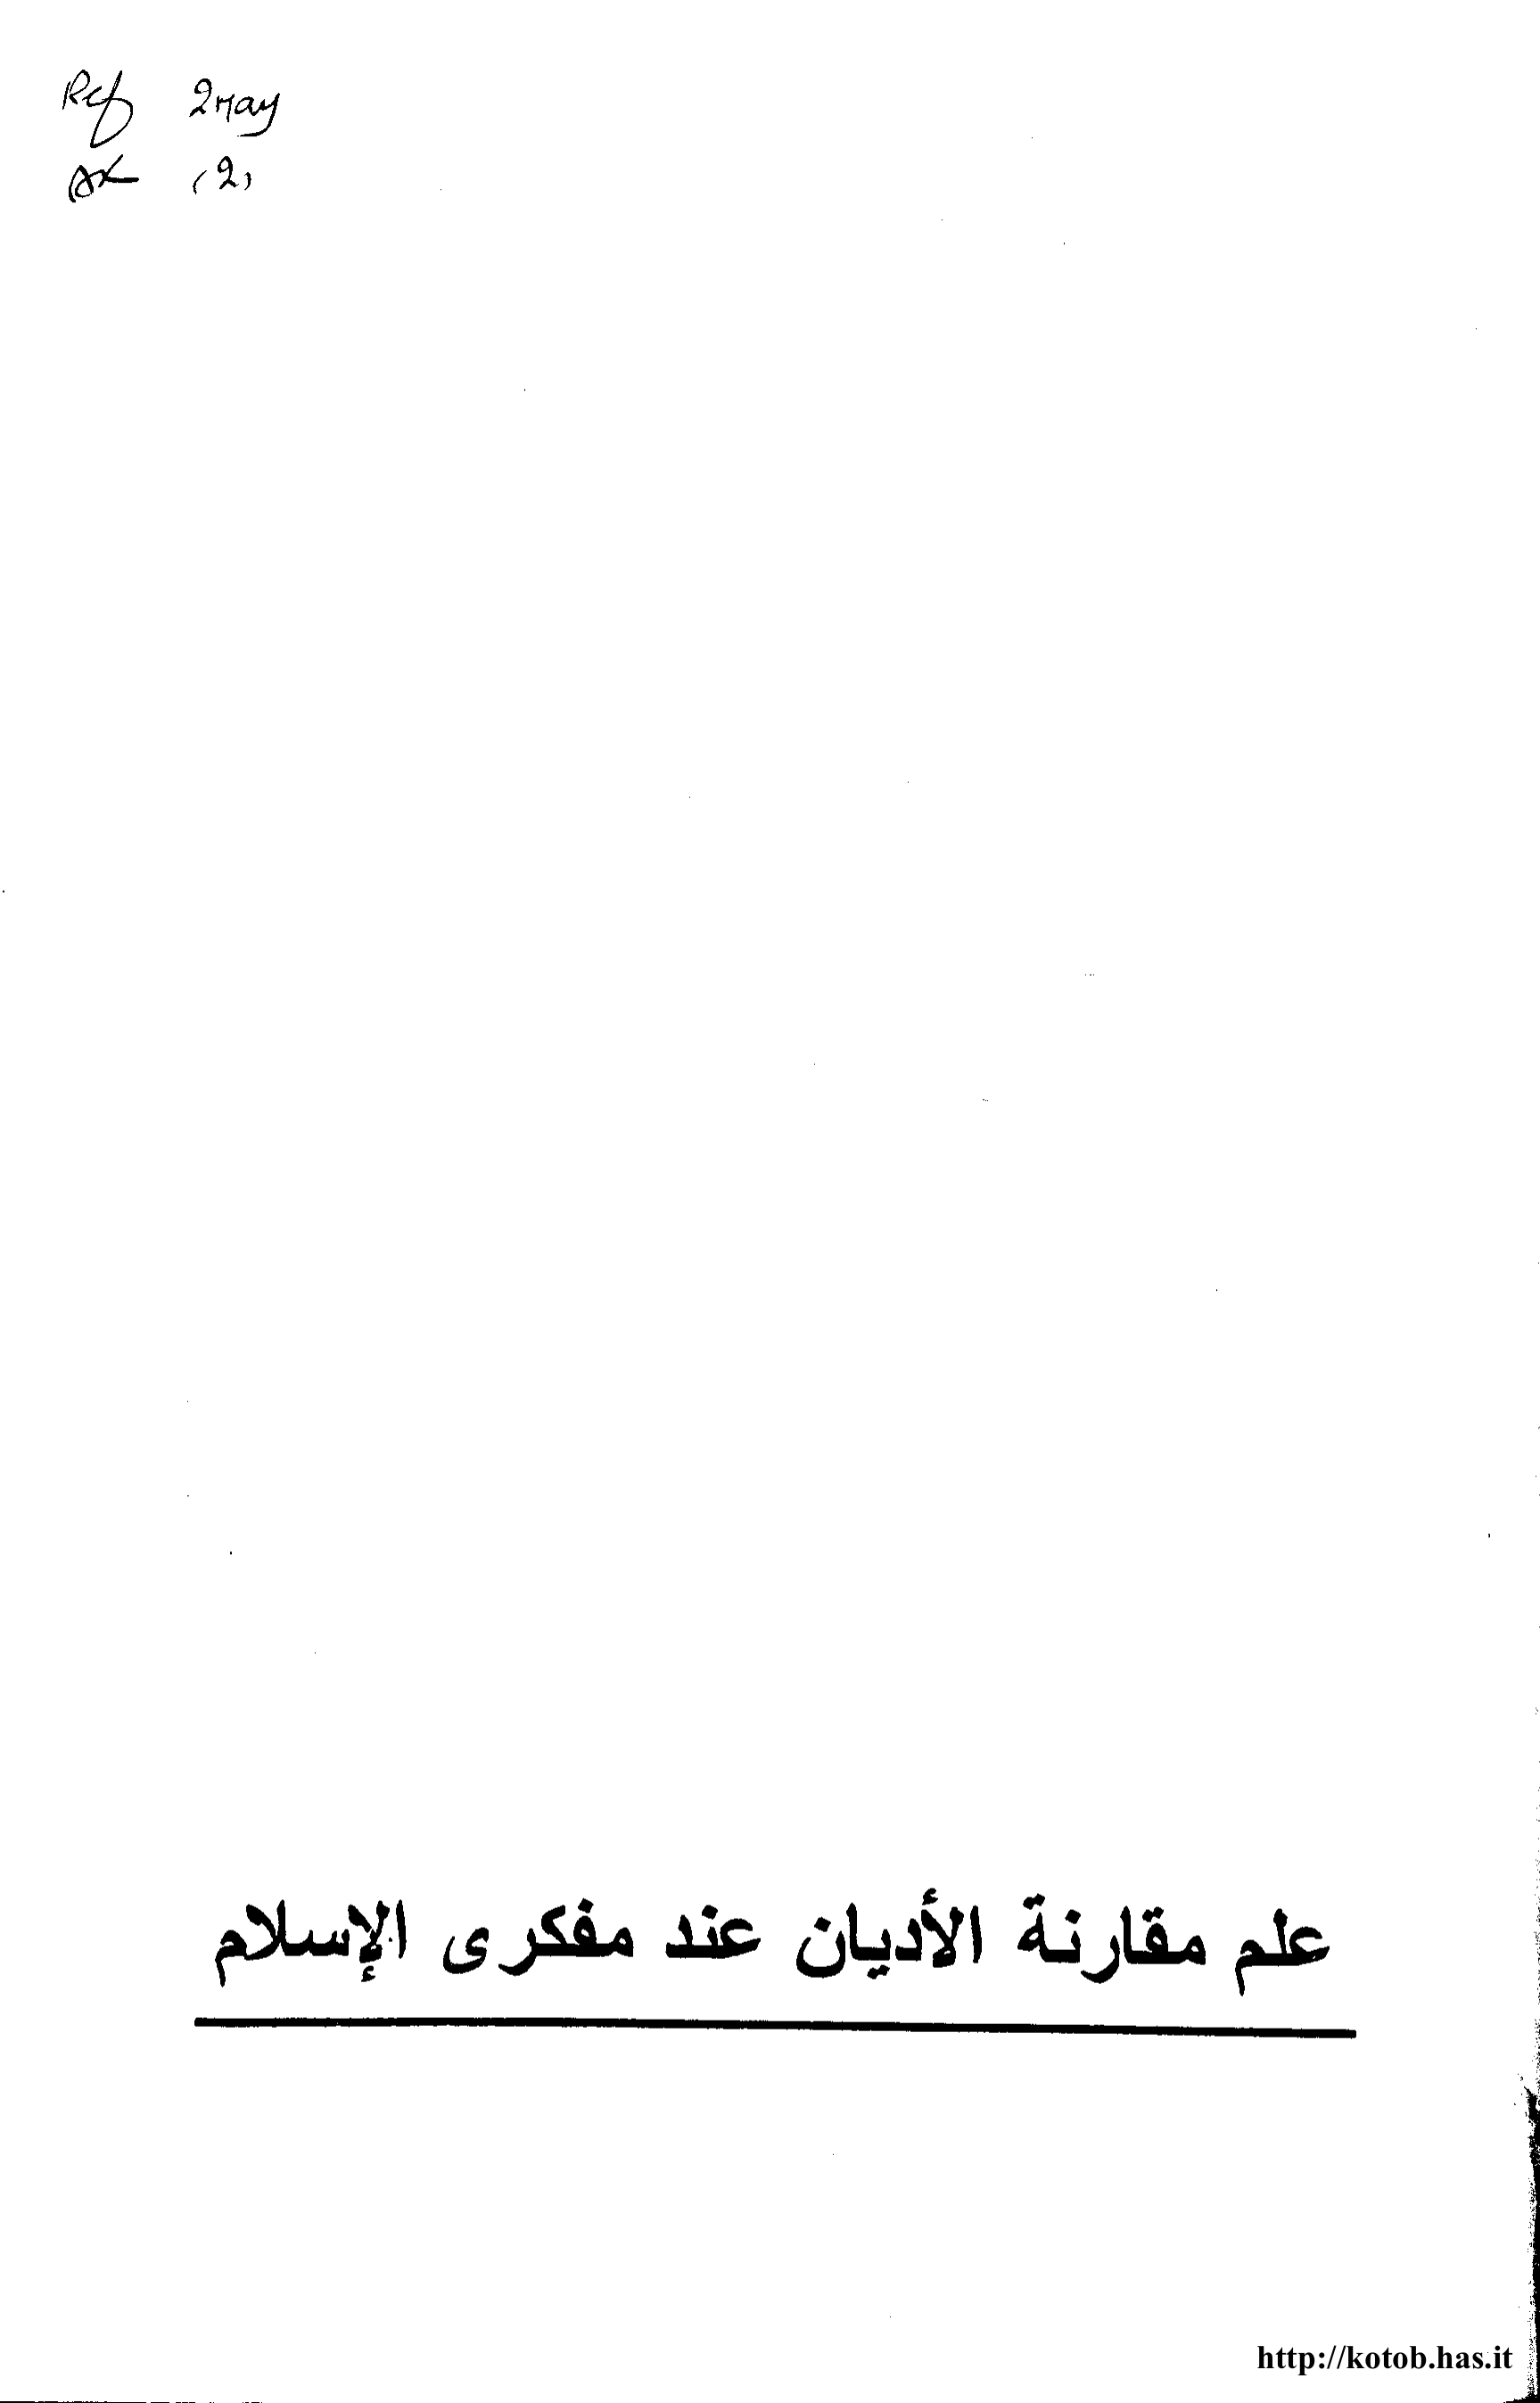 Ref 2 May
(2)
علم مقارنة الأديان عند مفكرى الإسلام
http://kotob.has.it